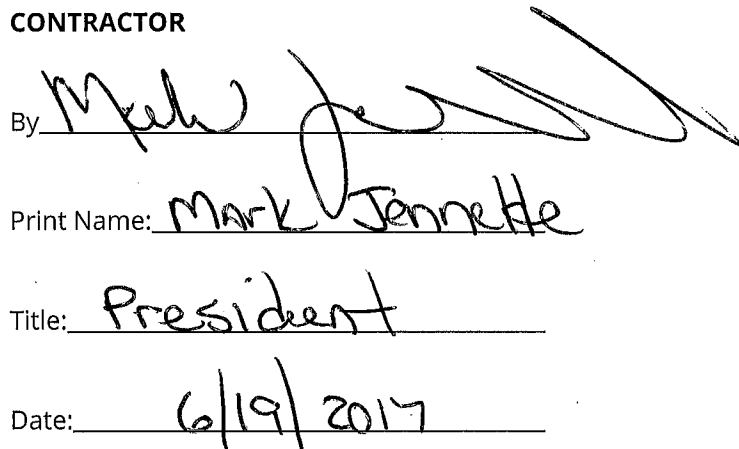 CONTRACTOR
By Mark Je
Print Name: Mark Jennette
Title: President
Date: 6/19/2017